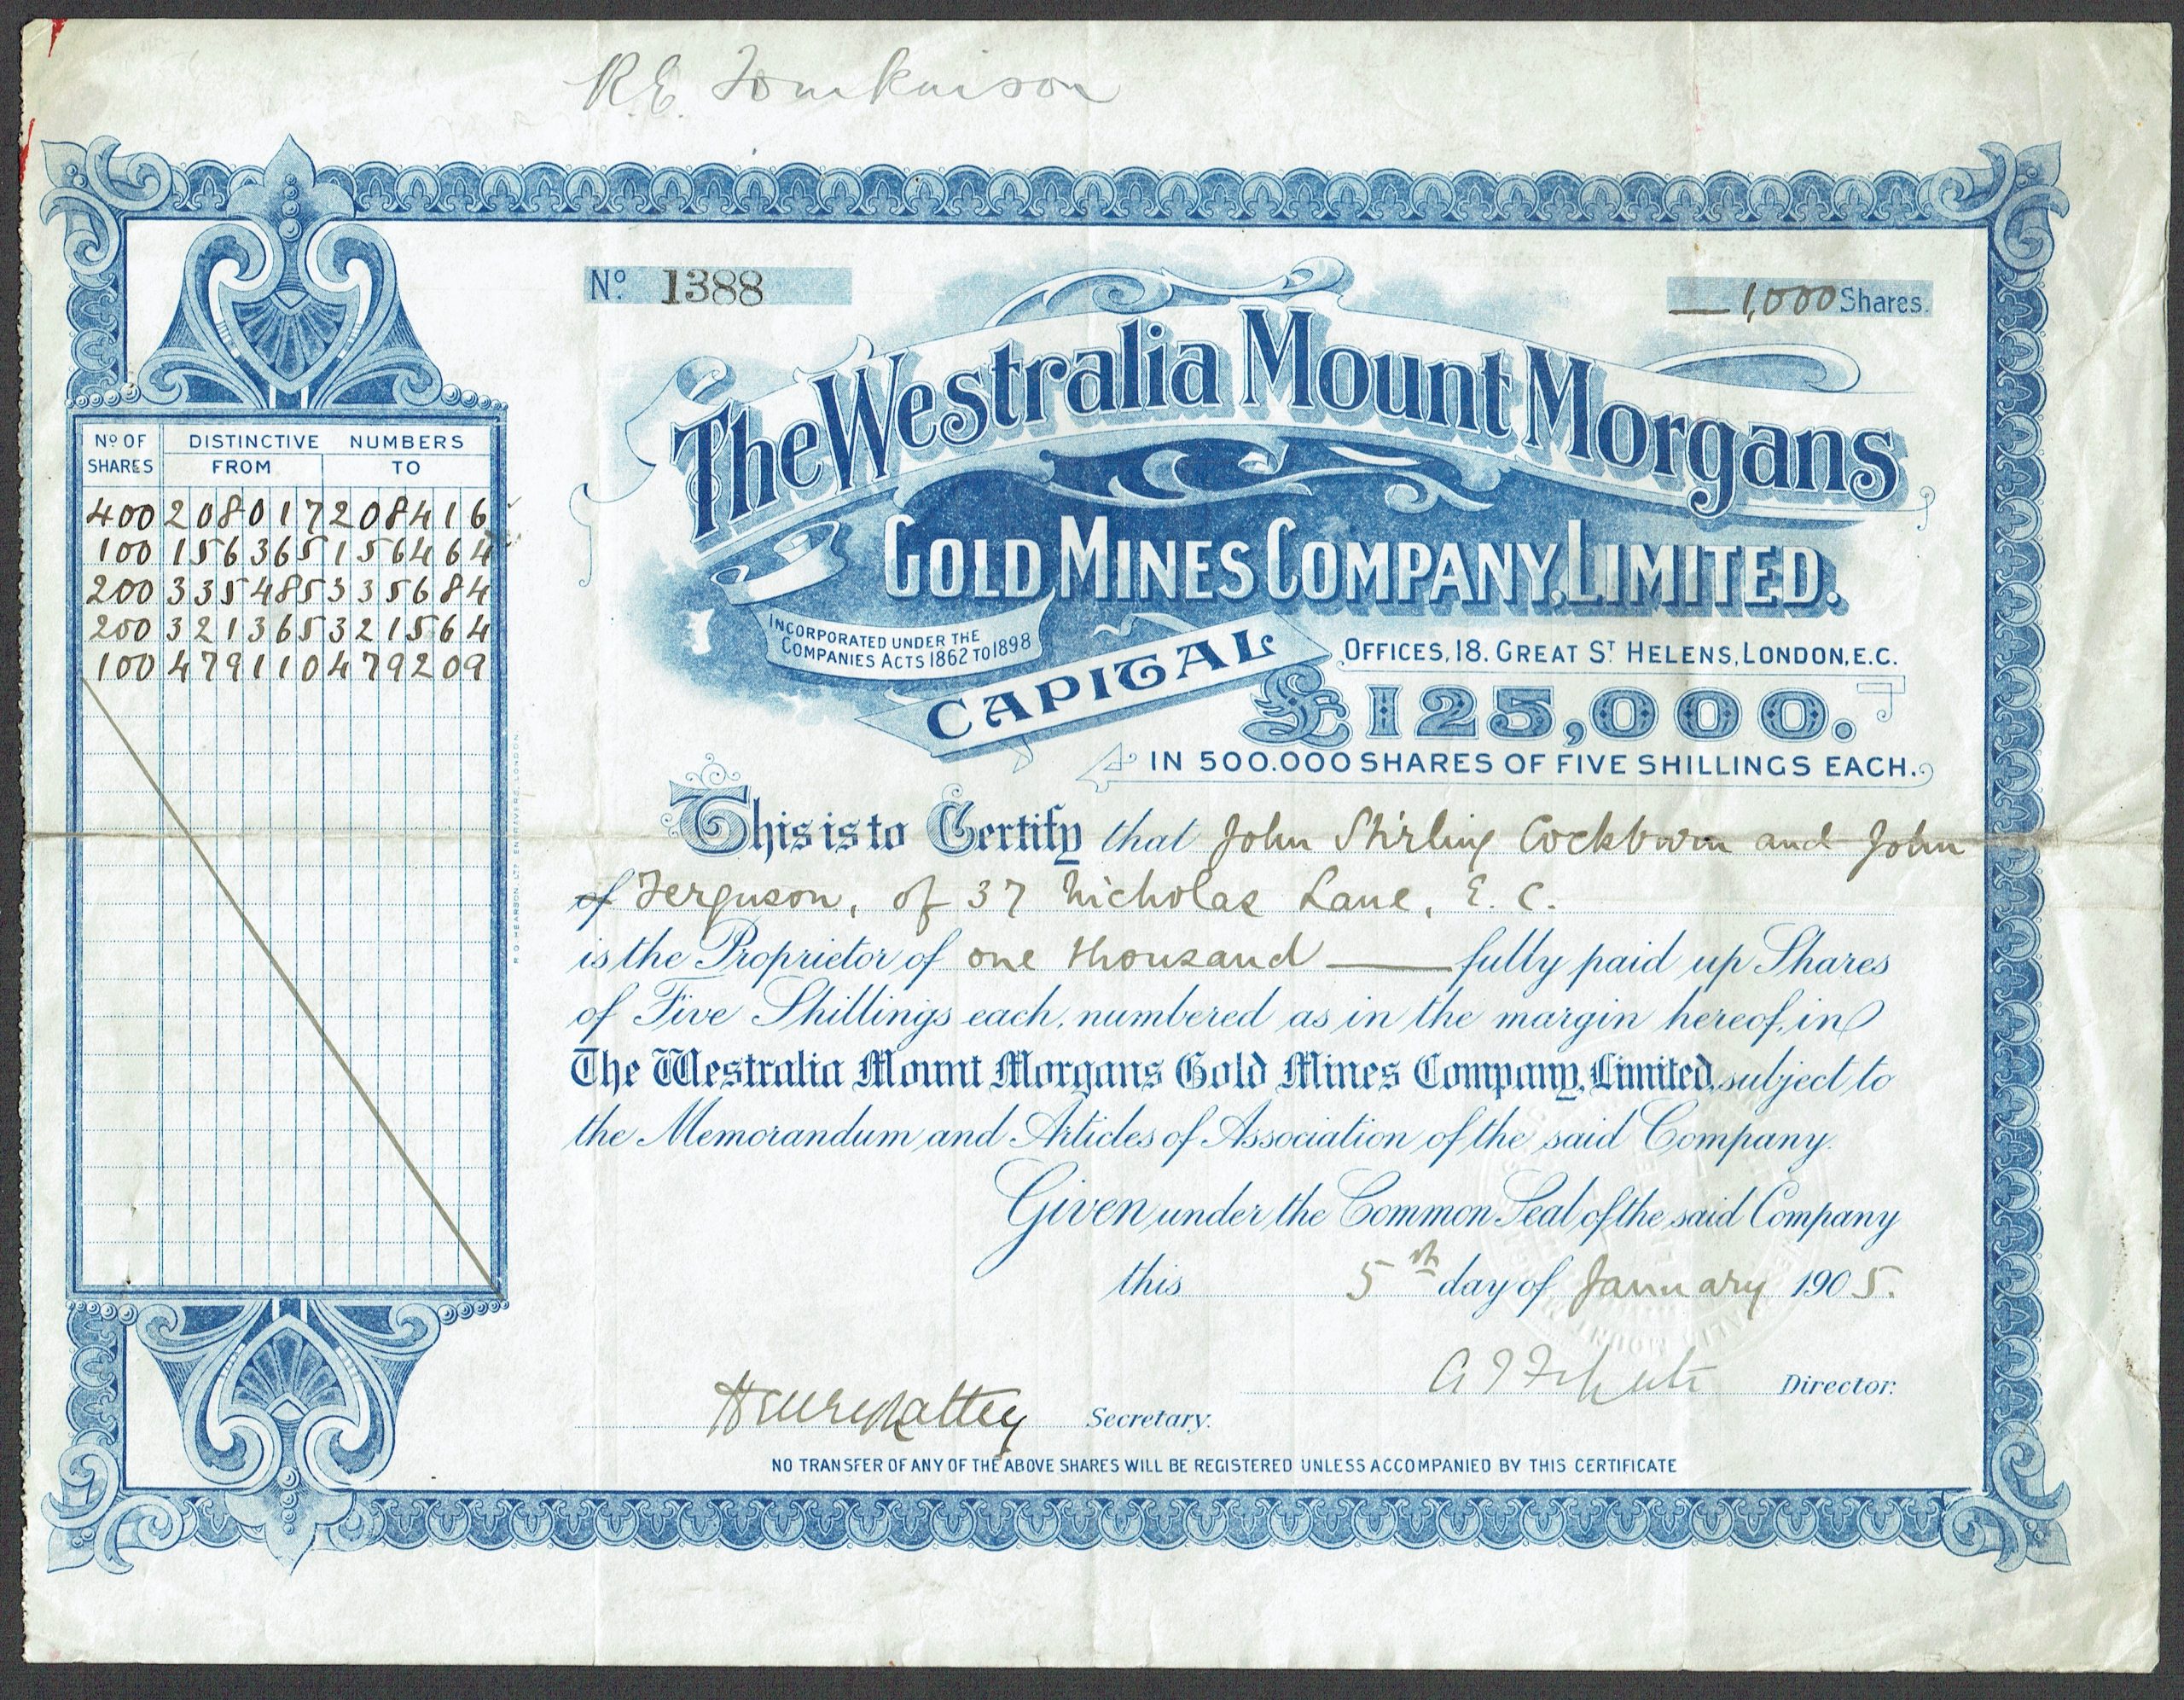 R.E. Tomkinson
No. 1388
1,000 Shares.
The Westralia Mount Morgans
GOLD MINES COMPANY, LIMITED.
INCORPORATED UNDER THE
COMPANIES ACTS 1862 TO 1898
OFFICES, 18. GREAT ST HELENS, LONDON, E.C.
CAPITAL
£125,000.
IN 500.000 SHARES OF FIVE SHILLINGS EACH.
No OF SHARES DISTINCTIVE NUMBERS
FROM TO
400 208017 208416
100 156365 156464
200 335485 335684
200 321365 321564
100 479110 479209
This is to Certify that John Shirling Cockburn and John
of Ferguson, of 37 Nicholas Lane, E.C.
is the Proprietor of one thousand fully paid up Shares
of Five Shillings each, numbered as in the margin hereof, in
The Westralia Mount Morgans Gold Mines Company, Limited, subject to
the Memorandum and Articles of Association of the said Company.
Given under the Common Seal of the said Company
this 5th day of January 1905.
Director.
Secretary.
NO TRANSFER OF ANY OF THE ABOVE SHARES WILL BE REGISTERED UNLESS ACCOMPANIED BY THIS CERTIFICATE